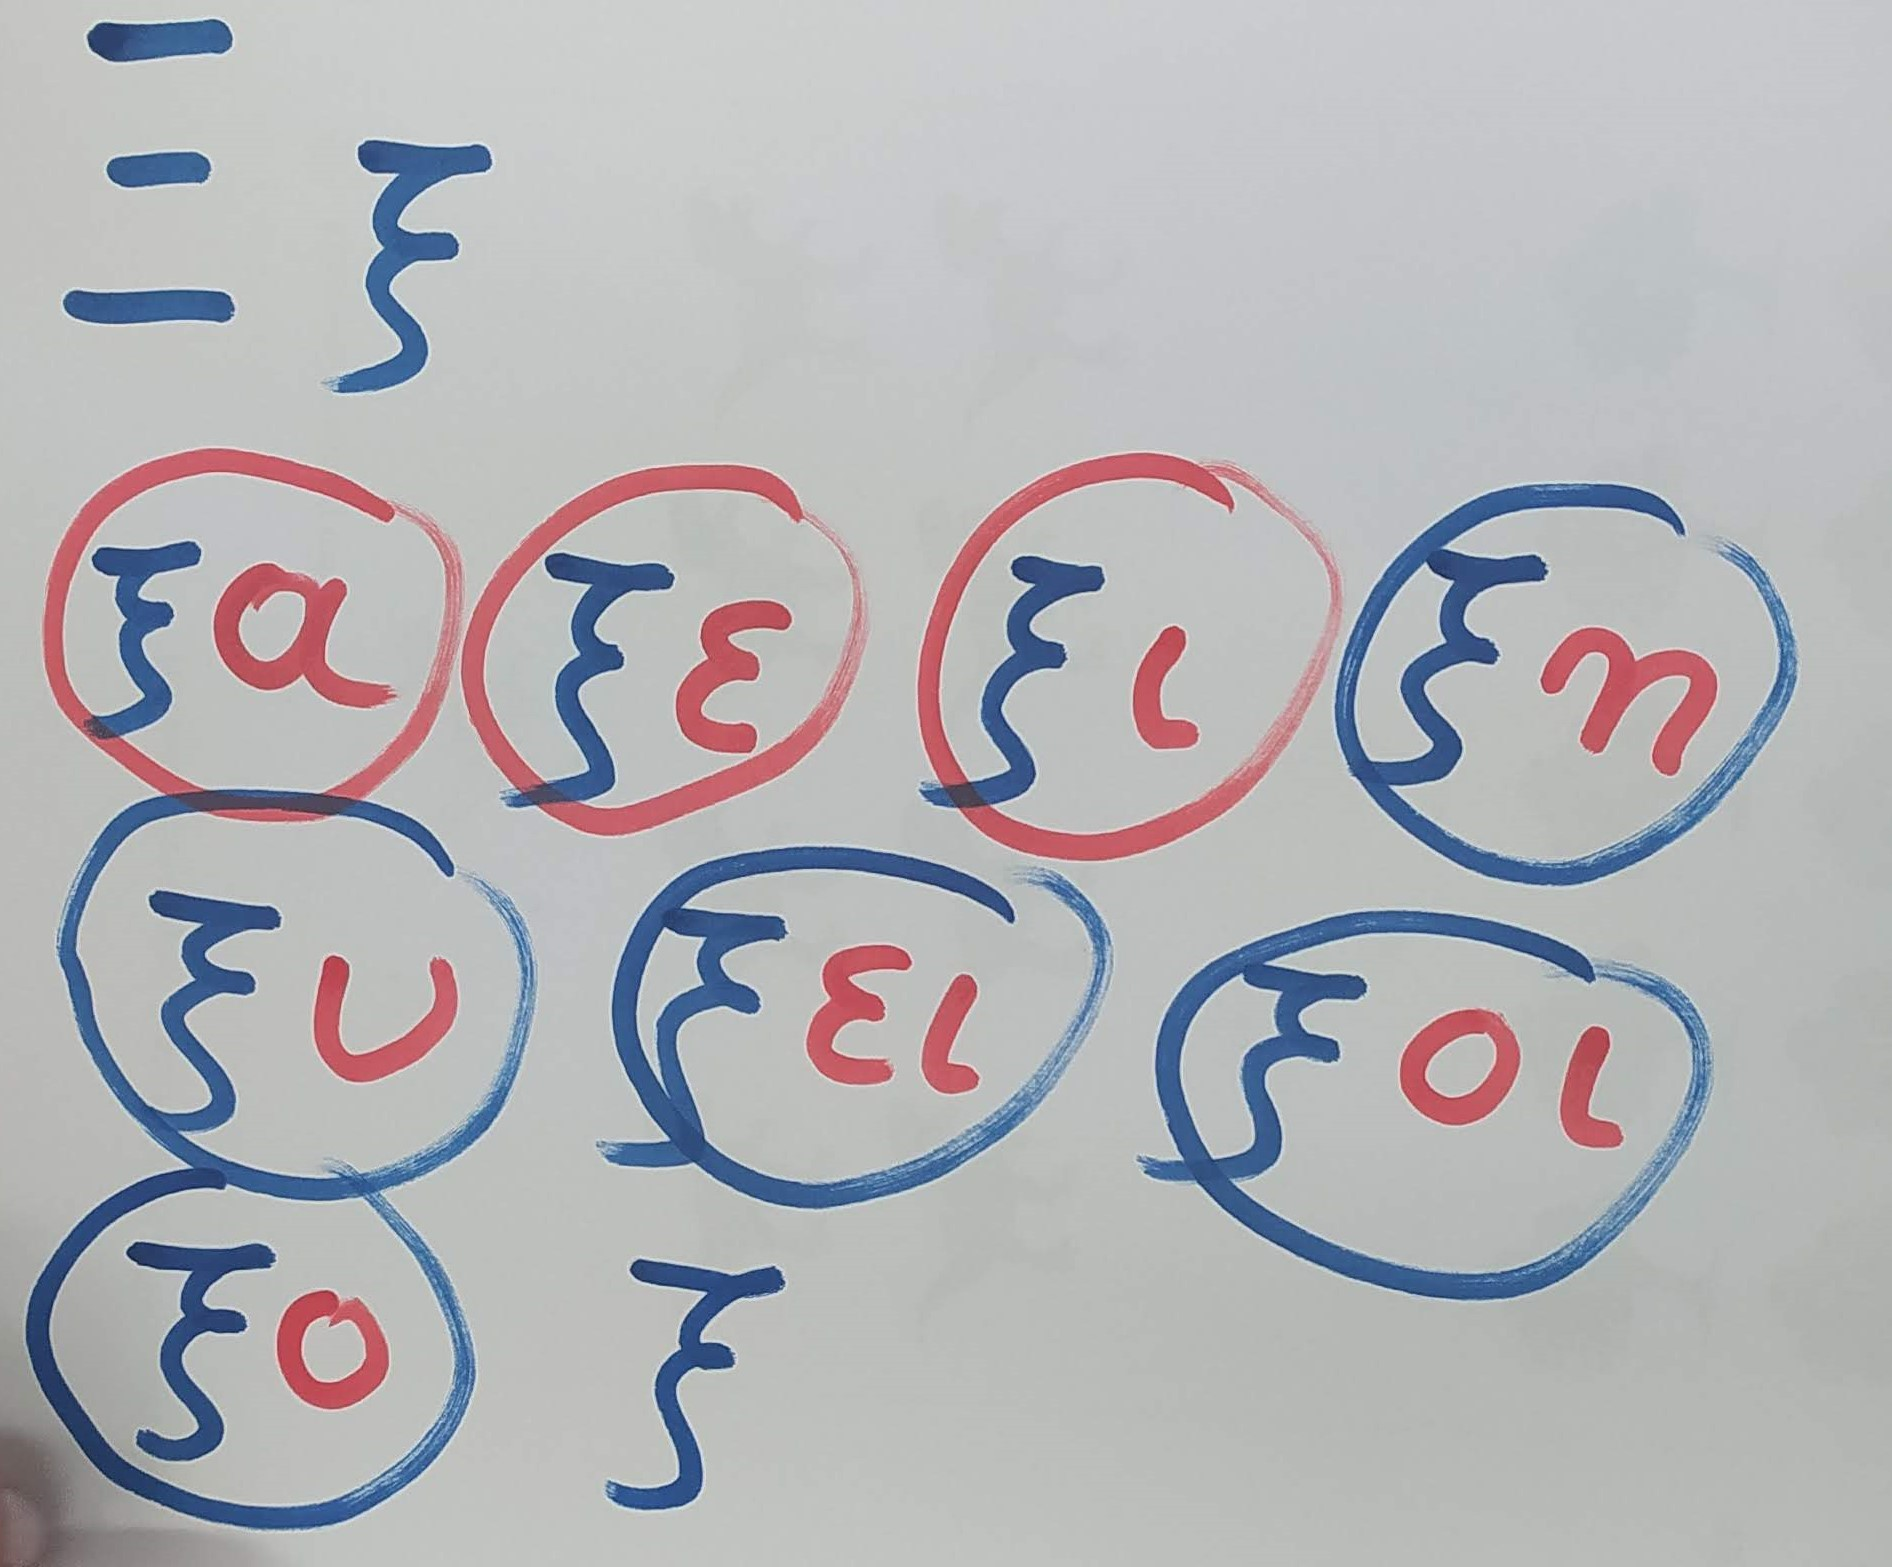 Ξ ξ
ξα ξε ξι ξη
ξυ ξει ξοι
ξο ξ